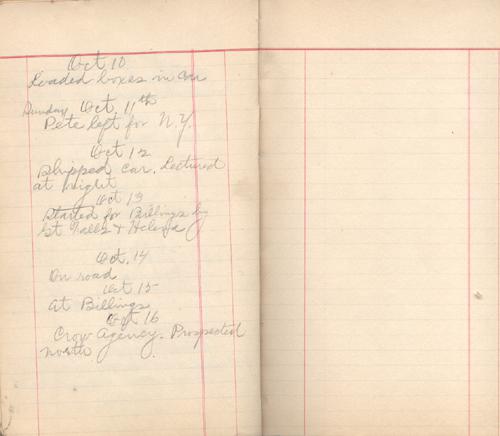 Oct 10
Loaded boxes in car
Sunday Oct. 11th
Pete left for N.Y.
Oct 12
Shipped car. Lectured
at night
Oct 13
Started for Billings by
Gt Falls & Helena
Oct. 14
On road
Oct 15
At Billings
Oct 16
Crow Agency. Prospected
north